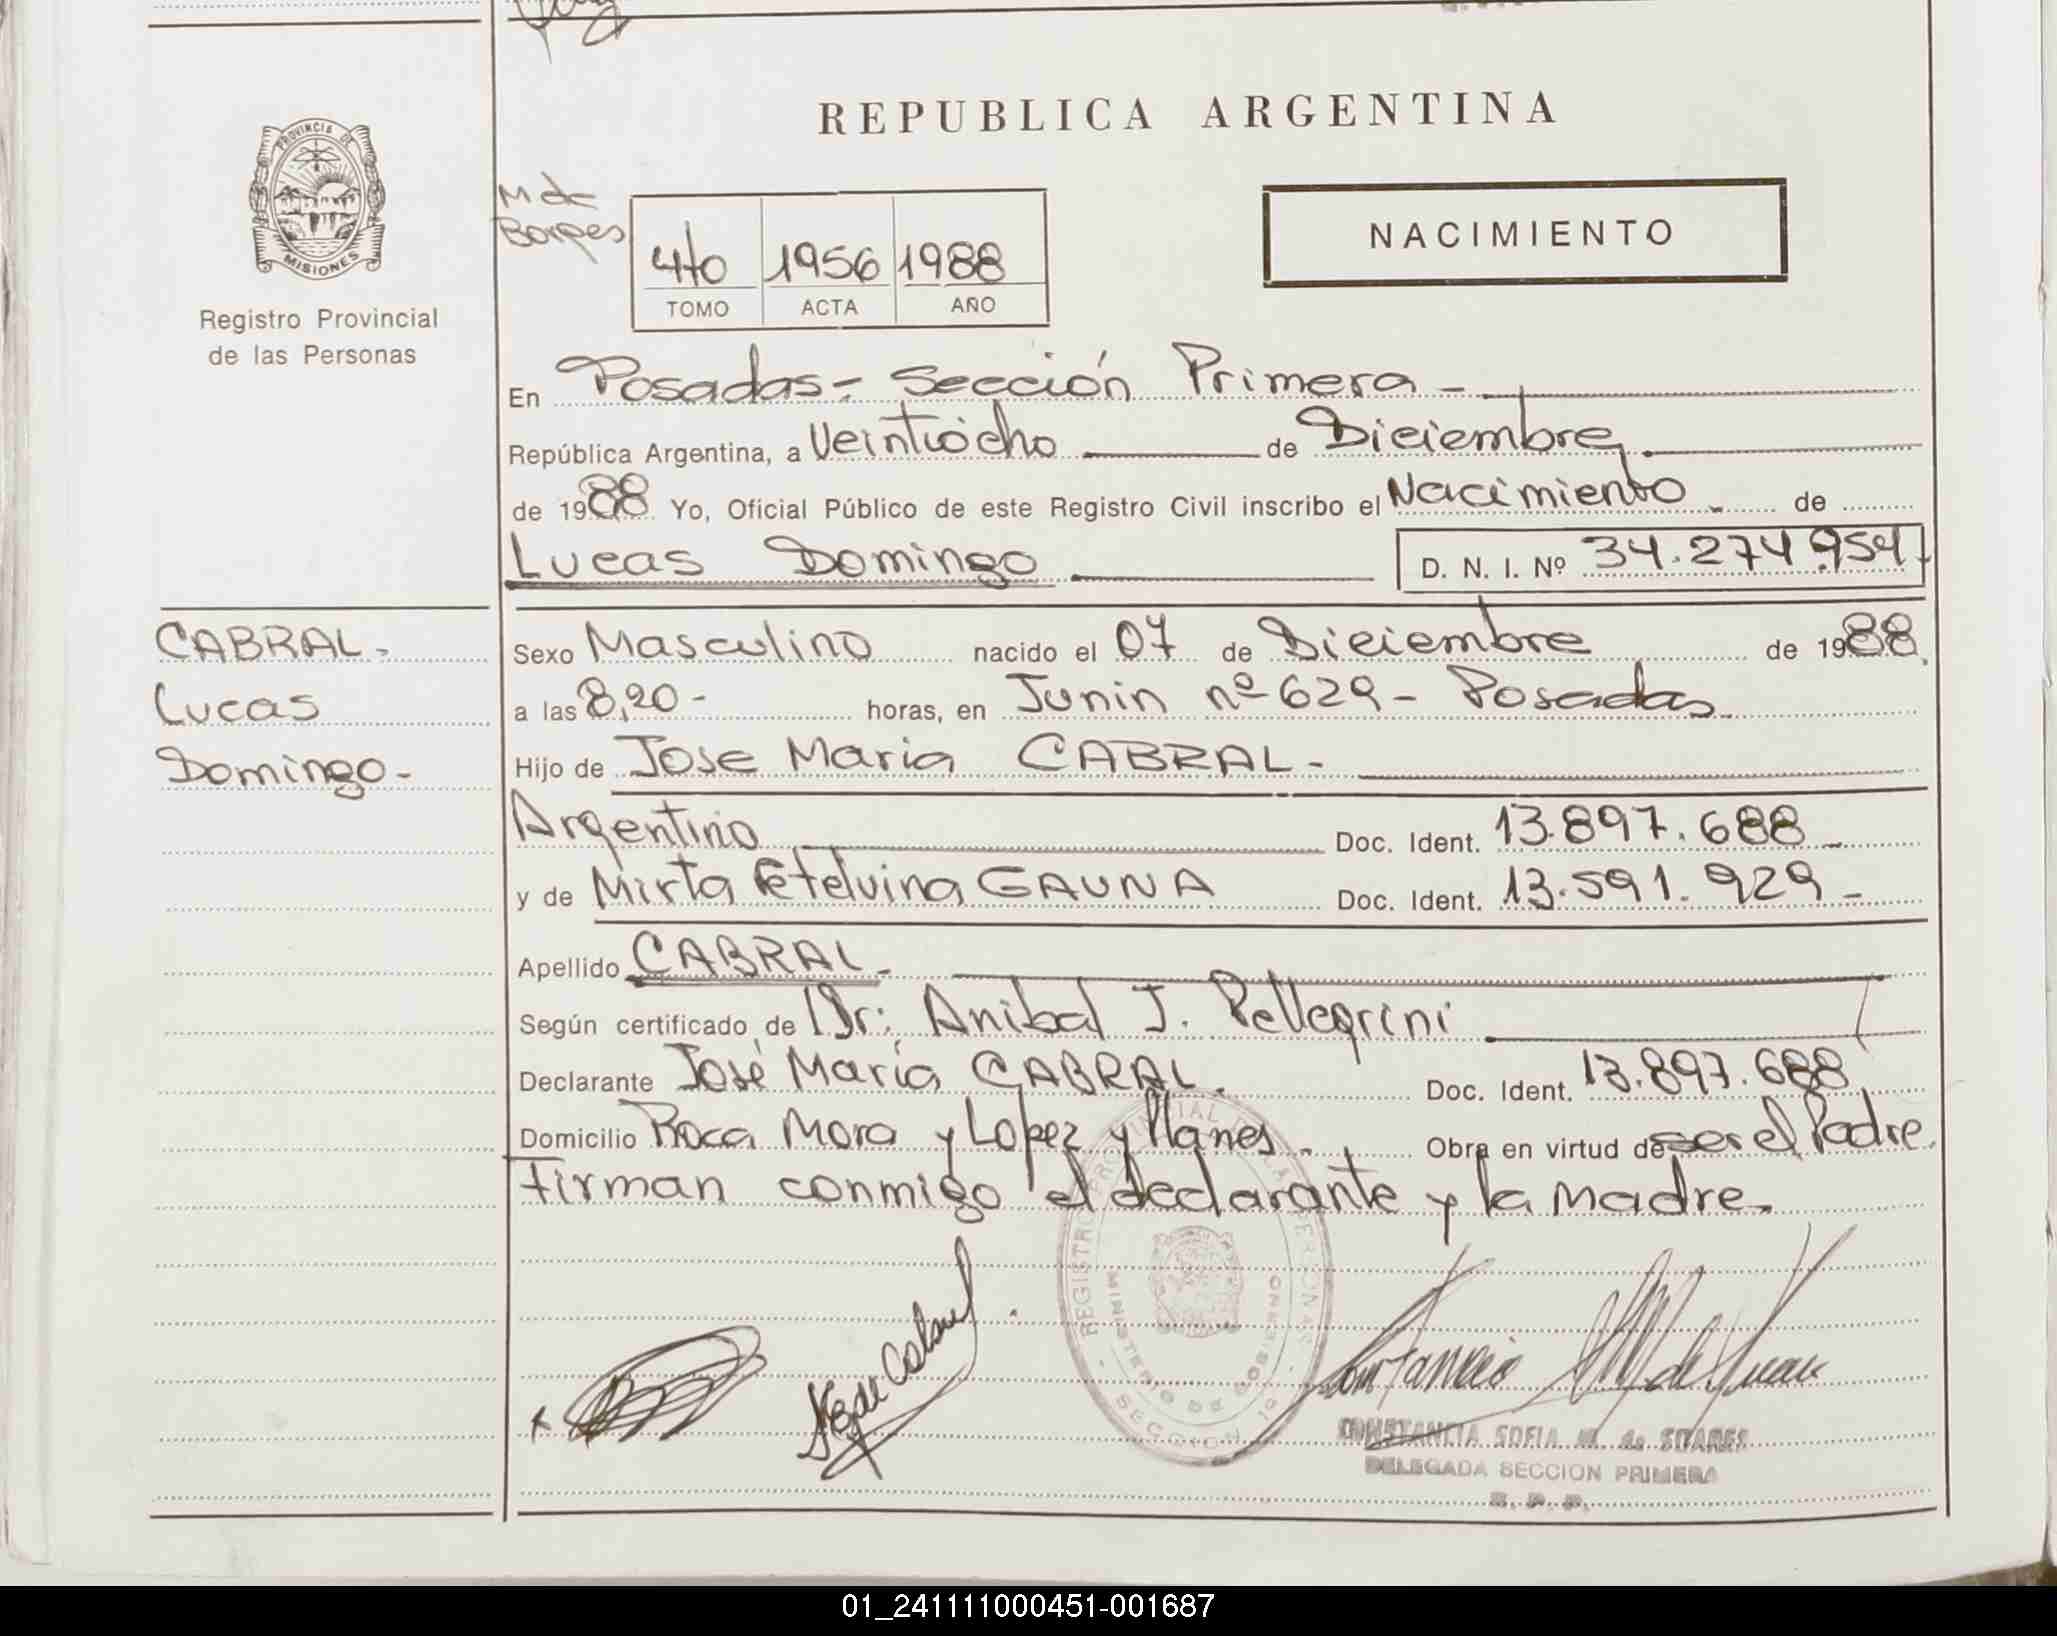 REPUBLICA ARGENTINA
PROVINCIA DE
MISIONES
Registro Provincial
de las Personas
M de
Borges
4to 1956 1988
TOMO ACTA AÑO
NACIMIENTO
En Posadas - Sección Primera -
República Argentina, a Veintiocho de Diciembre
de 1988 Yo, Oficial Público de este Registro Civil inscribo el Nacimiento de
Lucas Domingo D. N. I. Nº 34.274.954
CABRAL -
Lucas
Domingo -
Sexo Masculino nacido el 07 de Diciembre de 1988
a las 8,20 - horas, en Junin nº 629 - Posadas
Hijo de Jose Maria CABRAL -
Argentino Doc. Ident. 13.897.688
y de Mirta Etelvina GAUNA Doc. Ident. 13.591.929 -
Apellido CABRAL -
Según certificado de Dr. Anibal J. Pellegrini
Declarante José María CABRAL. Doc. Ident. 13.897.688
Domicilio Roca Mora y Lopez y Planes. Obra en virtud de ser el Padre.
Firman conmigo el declarante y la madre.
REGISTRO PROVINCIAL DE LAS PERSONAS
MINISTERIO DE GOBIERNO
SECCION 1º
CONSTANCIA SOFIA M. de SOARES
DELEGADA SECCION PRIMERA
R. P. P.
01_241111000451-001687